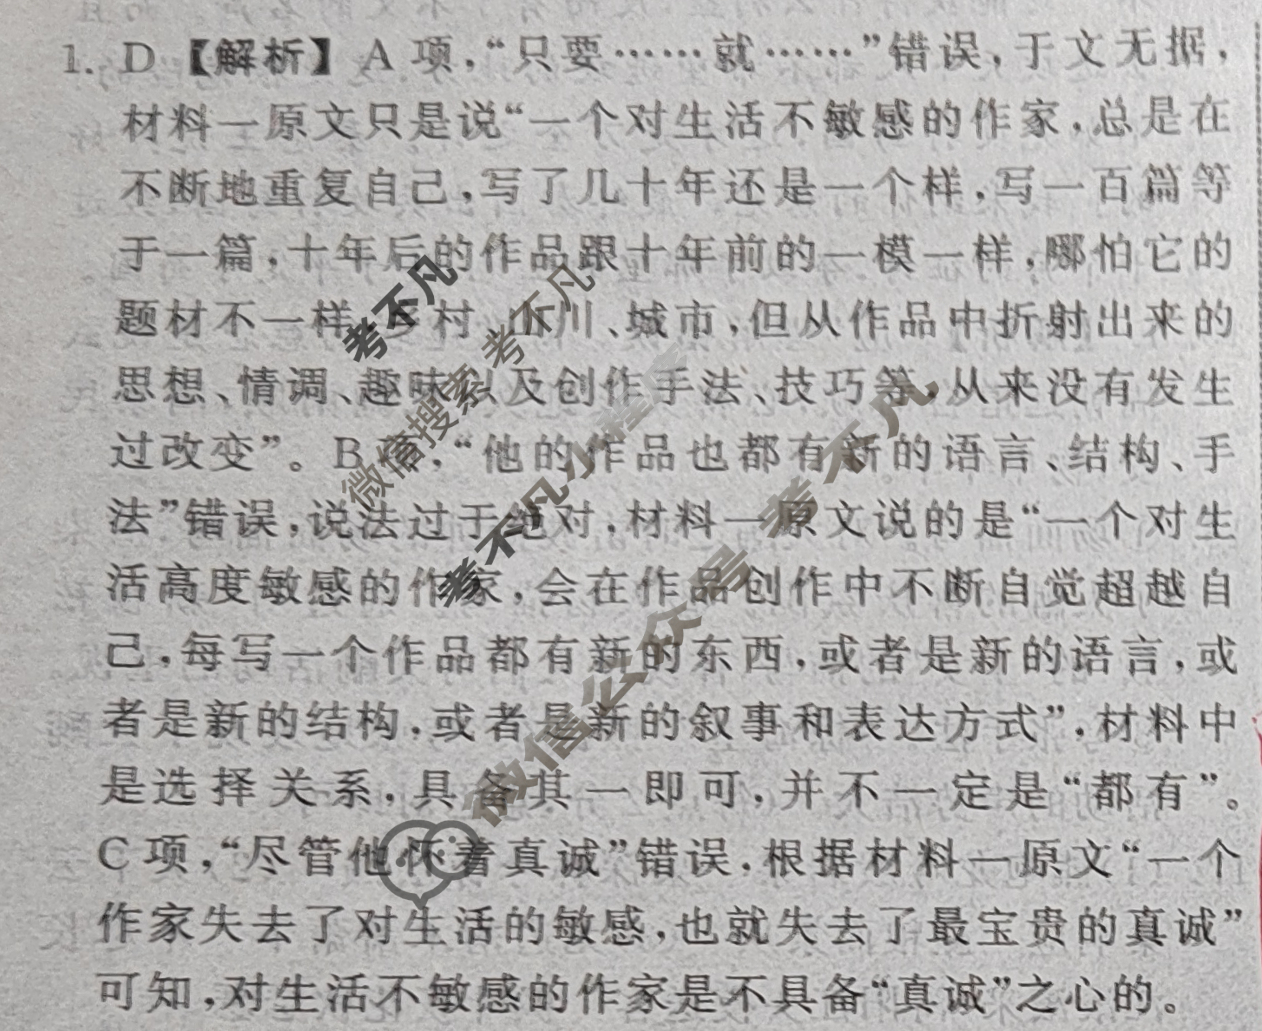 1. D【解析】A 项,“只要……就……”错误,于文无据,
材料一原文只是说“一个对生活不敏感的作家,总是在
不断地重复自己,写了几十年还是一个样,写一百篇等
于一篇,十年后的作品跟十年前的一模一样,哪怕它的
题材不一样,乡村、山川、城市,但从作品中折射出来的
思想、情调、趣味以及创作手法、技巧等,从来没有发生
过改变”。B 项,“他的作品也都有新的语言、结构、手
法”错误,说法过于绝对,材料一原文说的是“一个对生
活高度敏感的作家,会在作品创作中不断自觉超越自
己,每写一个作品都有新的东西,或者是新的语言,或
者是新的结构,或者是新的叙事和表达方式”,材料中
是选择关系,具备其一即可,并不一定是“都有”。
C 项,“尽管他怀着真诚”错误,根据材料一原文“一个
作家失去了对生活的敏感,也就失去了最宝贵的真诚”
可知,对生活不敏感的作家是不具备“真诚”之心的。
考不凡
微信搜索 考不凡
考不凡小程序
微信公众号 考不凡